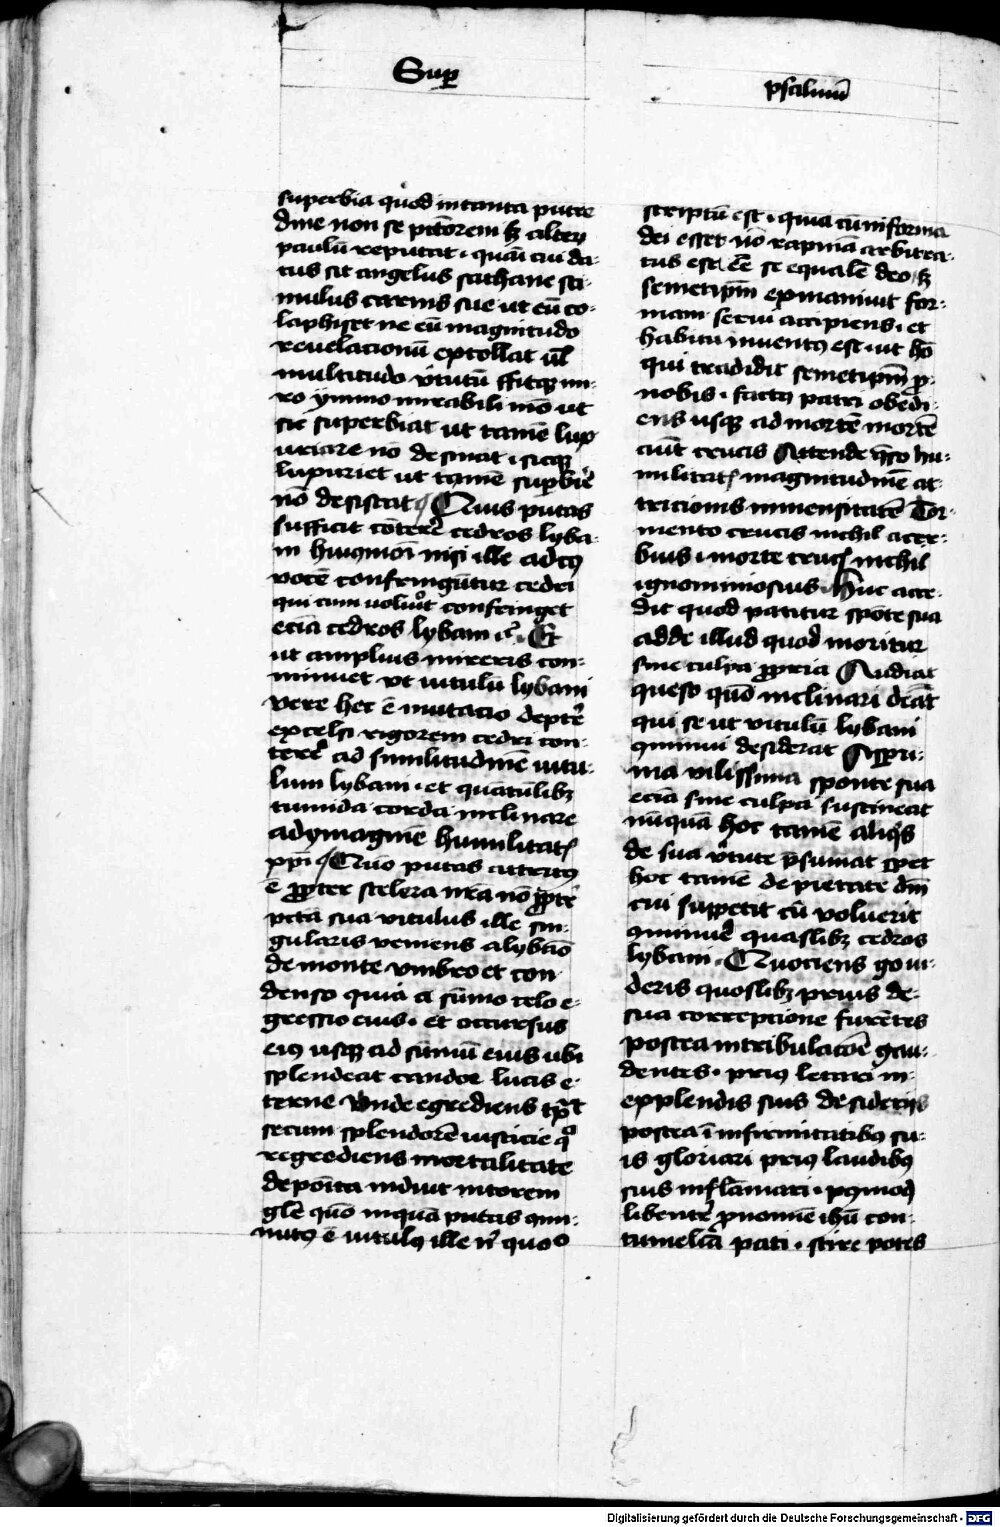 Sup
psalmū
superbia quod in tanta putre
dine non se pctōrem sꝫ alteꝝ
paulū reputat · quāu cui da-
tus sit angelus sathane sti-
mulus carnis sue ut eū co-
laphiset ne eū magnitudo
reuelacionū extollat ul̄
multitudo v̓tutū ffitqꝫ mi-
ro ymmo mirabili mō ut
sic superbiat ut tamē lux
uriare nō desinat · sicqꝫ
luxuriet ut tamē suꝑbir̄e
nō desistat Quis putas
sufficit cōter̄e cedros lyba-
ni huiꝰmoi nisi ille ad cꝰ
vocē confringūtur cedri
qui cum uolu̓it confringet
eciā cedros lybani ⁊c̄ · Et
ut amplius mireris con-
minuet vt uitulū lybani
vere hec ē mutacio dext̓e
excelsi rigorem cedri con-
ter̄e ad similitudinē uitu-
lum lybani · et quātūlibꝫ
tumida corda inclinare
ad ymaginē humilitatꝭ
xp̄i Quō putas attritꝰ
ē ꝓpter scelera nr̄a nō ꝓpt̓
pctā sua vitulus ille sin-
gularis veniens a lybāo
de monte vmbro et con
denso quia a sūmo celo e-
gressio eius · et occursus
eiꝰ usqꝫ ad sūmū eius ubi
splendeat candor lucis e-
terne Vnde egrediens tpāt
secum splendorē iusticie qͦ
regrediens mortalitate
deposita induit nitorem
glē quō inquā putas qmi-
nutꝰ ē uitulꝰ ille nͥ quo
scriptū est · quia cū in forma
dei esset nō rapinā arbitra-
tus est eē se equalē deo sꝫ
semetipm̄ exinaniuit for-
mam serui accipiens · et
habitu inuentꝰ est ut hō
qui tradidit semetipm̄ ꝓ-
nobis · factꝰ patri obedi-
ens usqꝫ ad mortē mortē
aut̄ crucis Attende q̄so hu-
militatꝭ magnitudinē at-
tricionis immensitatē Tor-
mento crucis nichil acer-
bius · morte crucꝭ nichil
ignominiosius · Huc acce-
dit quod patitur spōte sua
adde illud quod moritur
sine culpa ꝓpria Audiat
queso quō inclinari debeat
qui se ut vitulū lybani
qminui desiderat Asperri-
ma vilissima sponte sua
eciā sine culpa sustineat
nūquā hoc tamē aliqͥs
de sua v̓tute p̄sumat sꝫ et
hoc tamē de pietate dn̄i
cui suppetit cū voluerit
qminuē quaslibꝫ cedros
lybani · Quociens g° vi-
deris quoslibꝫ prius de-
sua correptione furētes
postea in tribulacōe gau-
dentes · priꝰ letari in-
explendis suis desiderijs
postea ī infirmitatibꝰ su-
is gloriari priꝰ laudibꝰ
suis inflāmari · pꝰmodū
libent̓ ꝓ nomine ihū con-
tumeliā pati · scire potes